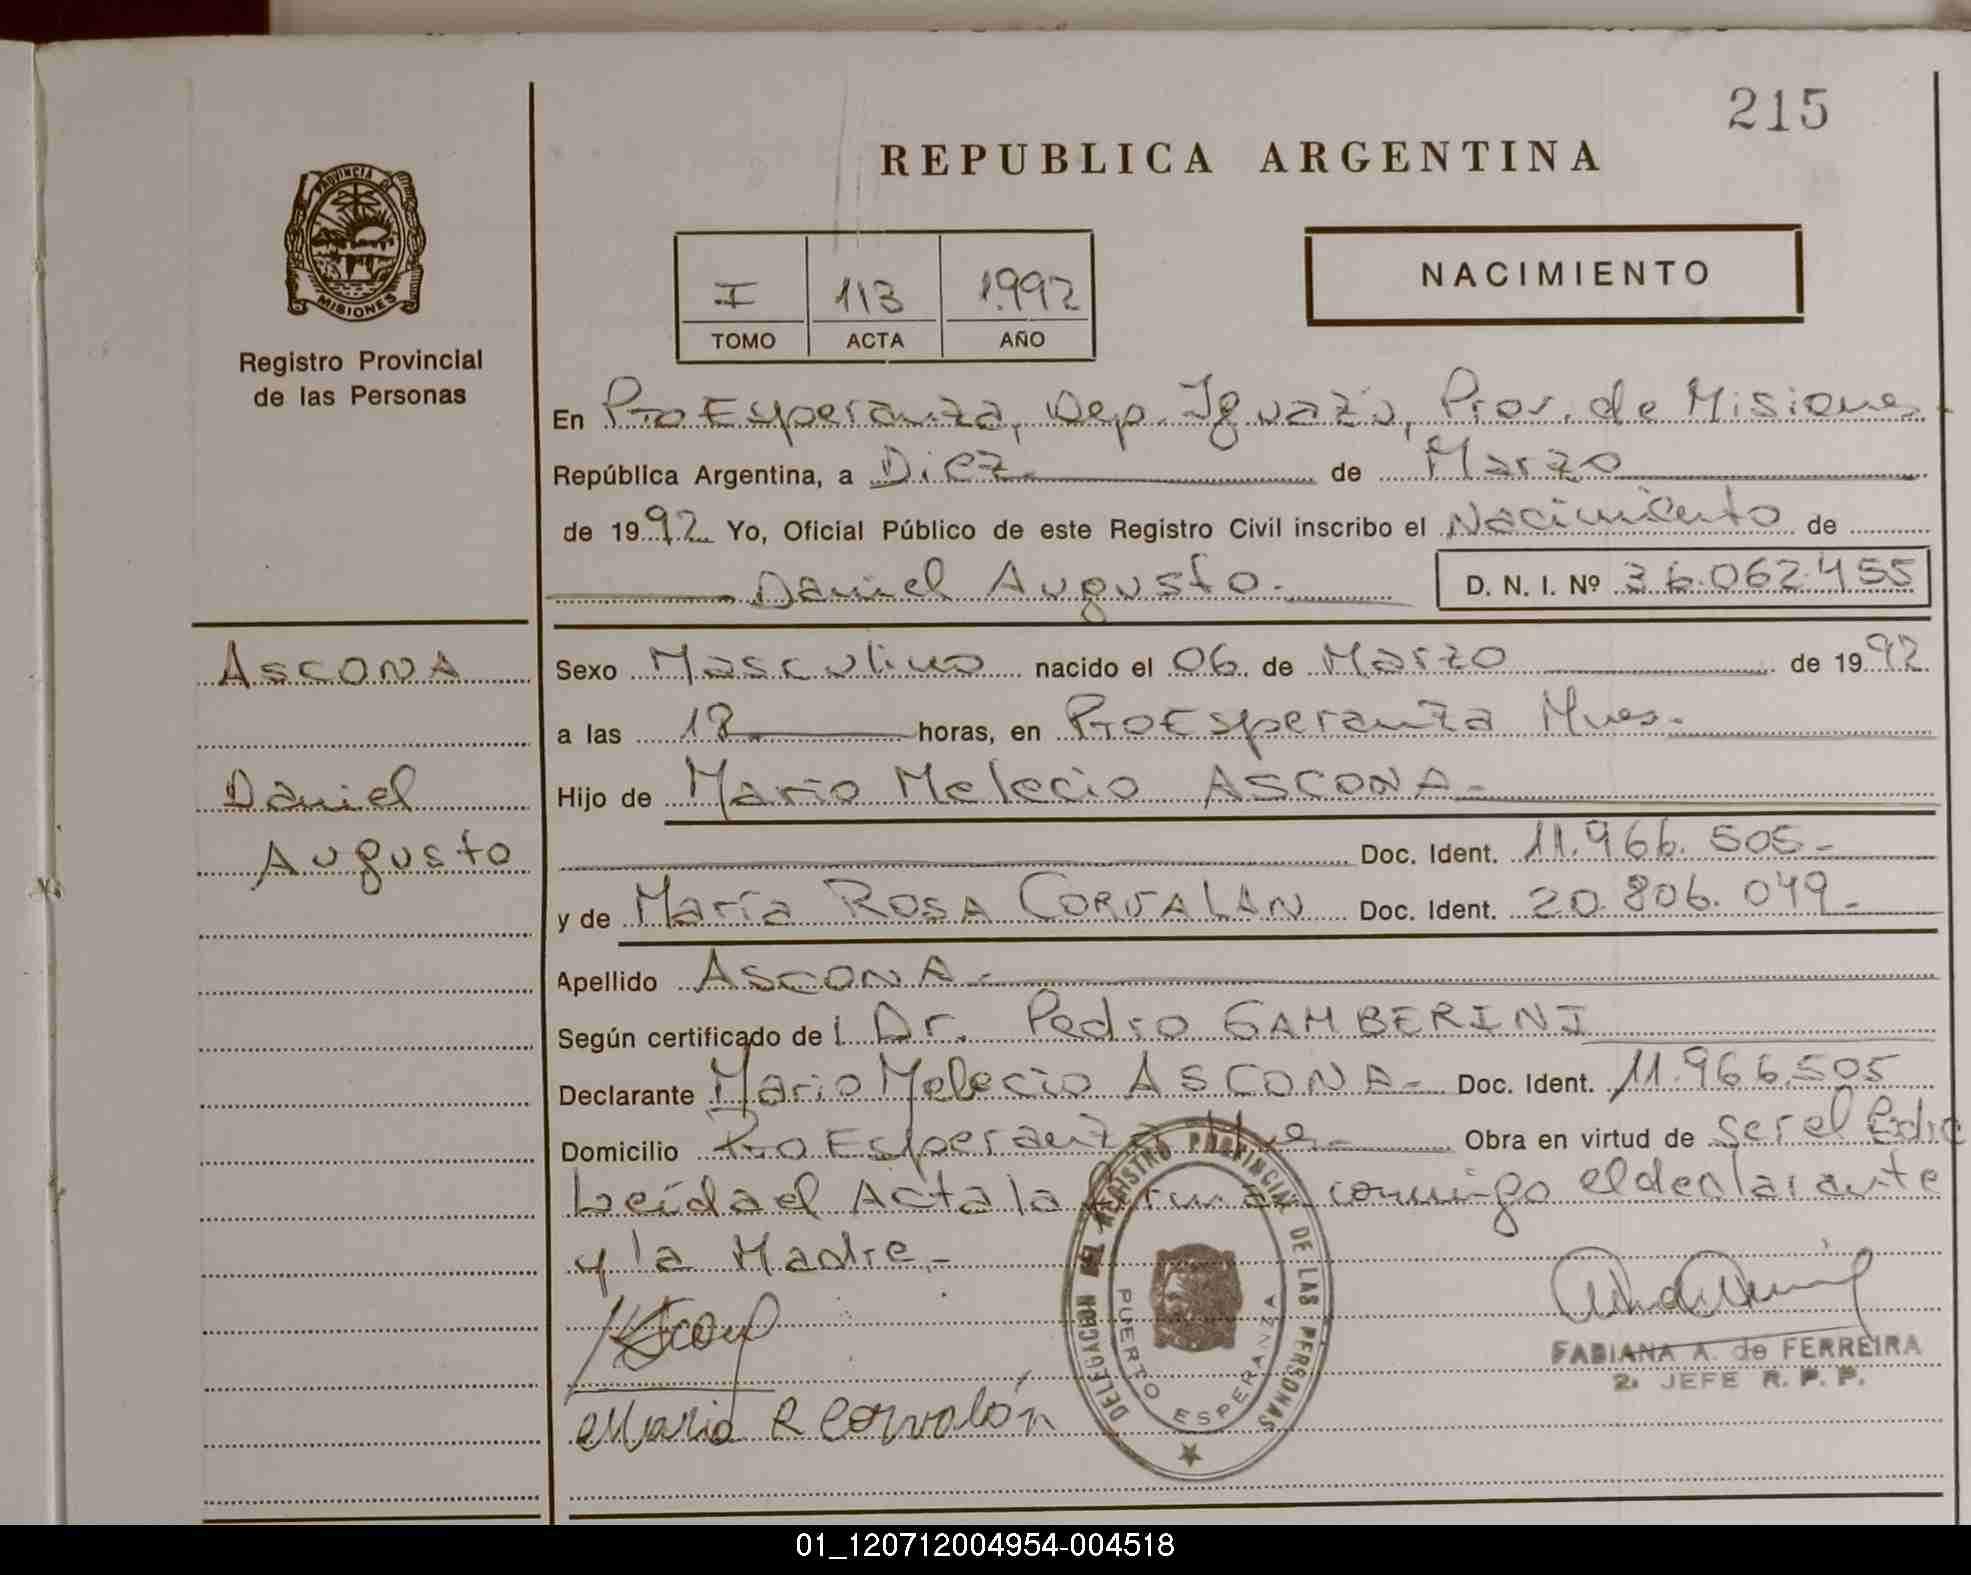 215
REPUBLICA ARGENTINA
PROVINCIA DE
MISIONES
Registro Provincial
de las Personas
NACIMIENTO
I 113 1992
TOMO ACTA AÑO
En Pto Esperanza, Dep. Iguazú, Prov. de Misiones
República Argentina, a Diez de Marzo
de 1992 Yo, Oficial Público de este Registro Civil inscribo el Nacimiento de
Daniel Augusto.
D. N. I. Nº 36.062.455
ASCONA
Daniel
Augusto
Sexo Masculino nacido el 06 de Marzo de 1992
a las 18 horas, en Pto Esperanza Mnes.
Hijo de Mario Melecio ASCONA-
Doc. Ident. 11.966.505-
y de María ROSA CORVALAN Doc. Ident. 20.806.049-
Apellido ASCONA-
Según certificado de l Dr. Pedro GAMBERINI
Declarante Mario Melecio ASCONA- Doc. Ident. 11.966.505
Domicilio Pto Esperanza Mnes- Obra en virtud de ser el Padre
Leída el Acta la firman conmigo el declarante
y la Madre.-
Maria R Corvalán
DELEGACION DEL REGISTRO PROVINCIAL DE LAS PERSONAS
PUERTO ESPERANZA
FABIANA A. de FERREIRA
2. JEFE R. P. P.
01_120712004954-004518